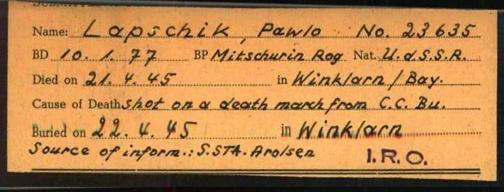 Name: Lapschik, Pawlo No. 23635
BD 10.1.77 BP Mitschurin Rog Nat. U.d.S.S.R.
Died on 21.4.45 in Winklarn/Bay.
Cause of Death Shot on a death march from C.C. Bu.
Buried on 22.4.45 in Winklarn
Source of inform.: S.STA. Arolsen
I.R.O.